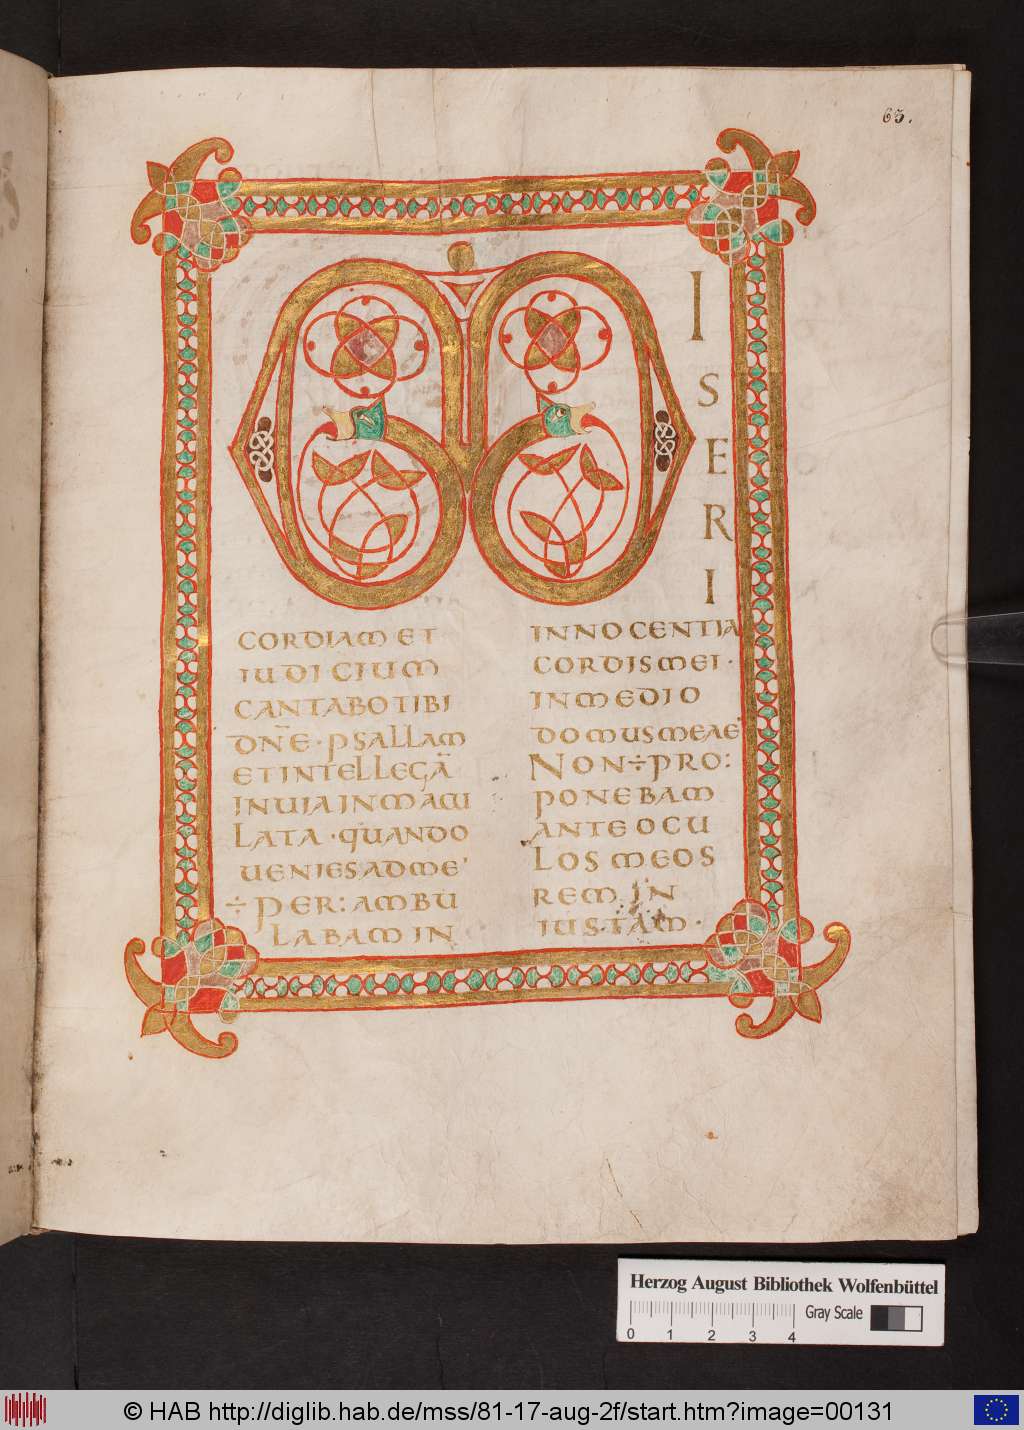 63.
M
ISERI
CORDIAM ET
IUDICIUM
CANTABO TIBI
DN̄E · PSALLAM
ET INTELLEGĀ
IN UIA INMACU
LATA · QUANDO
UENIES AD ME'
÷ PER: AMBU
LABAM IN
INNOCENTIA
CORDIS MEI ·
IN MEDIO
DOMUS MEAE
NON ÷ PRO:
PONEBAM
ANTE OCU
LOS MEOS
REM IN
IUSTAM ·
Herzog August Bibliothek Wolfenbüttel
0 1 2 3 4
Gray Scale
© HAB http://diglib.hab.de/mss/81-17-aug-2f/start.htm?image=00131